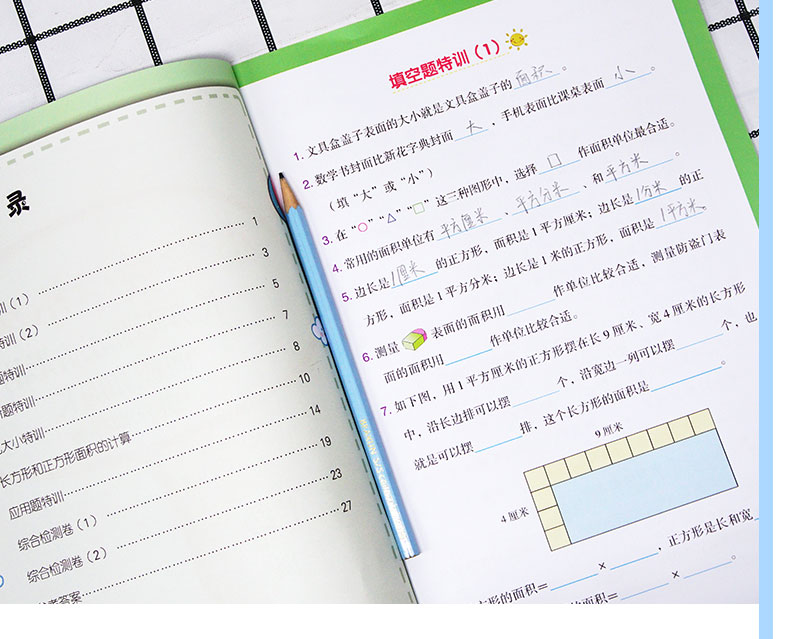 录
训（1）……1
特训（2）……3
题特训……5
题特训……7
大小特训……8
长方形和正方形面积的计算……10
应用题特训……14
综合检测卷（1）……19
综合检测卷（2）……23
答案……27
填空题特训（1）
1. 文具盒盖子表面的大小就是文具盒盖子的 面积 。
2. 数学书封面比新花字典封面 大 ，手机表面比课桌表面 小 。
（填“大”或“小”）
3. 在“○”“△”“□”这三种图形中，选择 □ 作面积单位最合适。
4. 常用的面积单位有 平方厘米 、 平方分米 、和 平方米 。
5. 边长是 1厘米 的正方形，面积是1平方厘米；边长是 1分米 的正
方形，面积是1平方分米；边长是1米的正方形，面积是 1平方米
6. 测量 表面的面积用____作单位比较合适，测量防盗门表
面的面积用____作单位比较合适。
7. 如下图，用1平方厘米的正方形摆在长9厘米、宽4厘米的长方形
中，沿长边排可以摆____个，沿宽边一列可以摆____个，也
就是可以摆____排，这个长方形的面积是____。
9厘米
4厘米
方形的面积＝____×____，正方形是长和宽
的面积＝____×____。